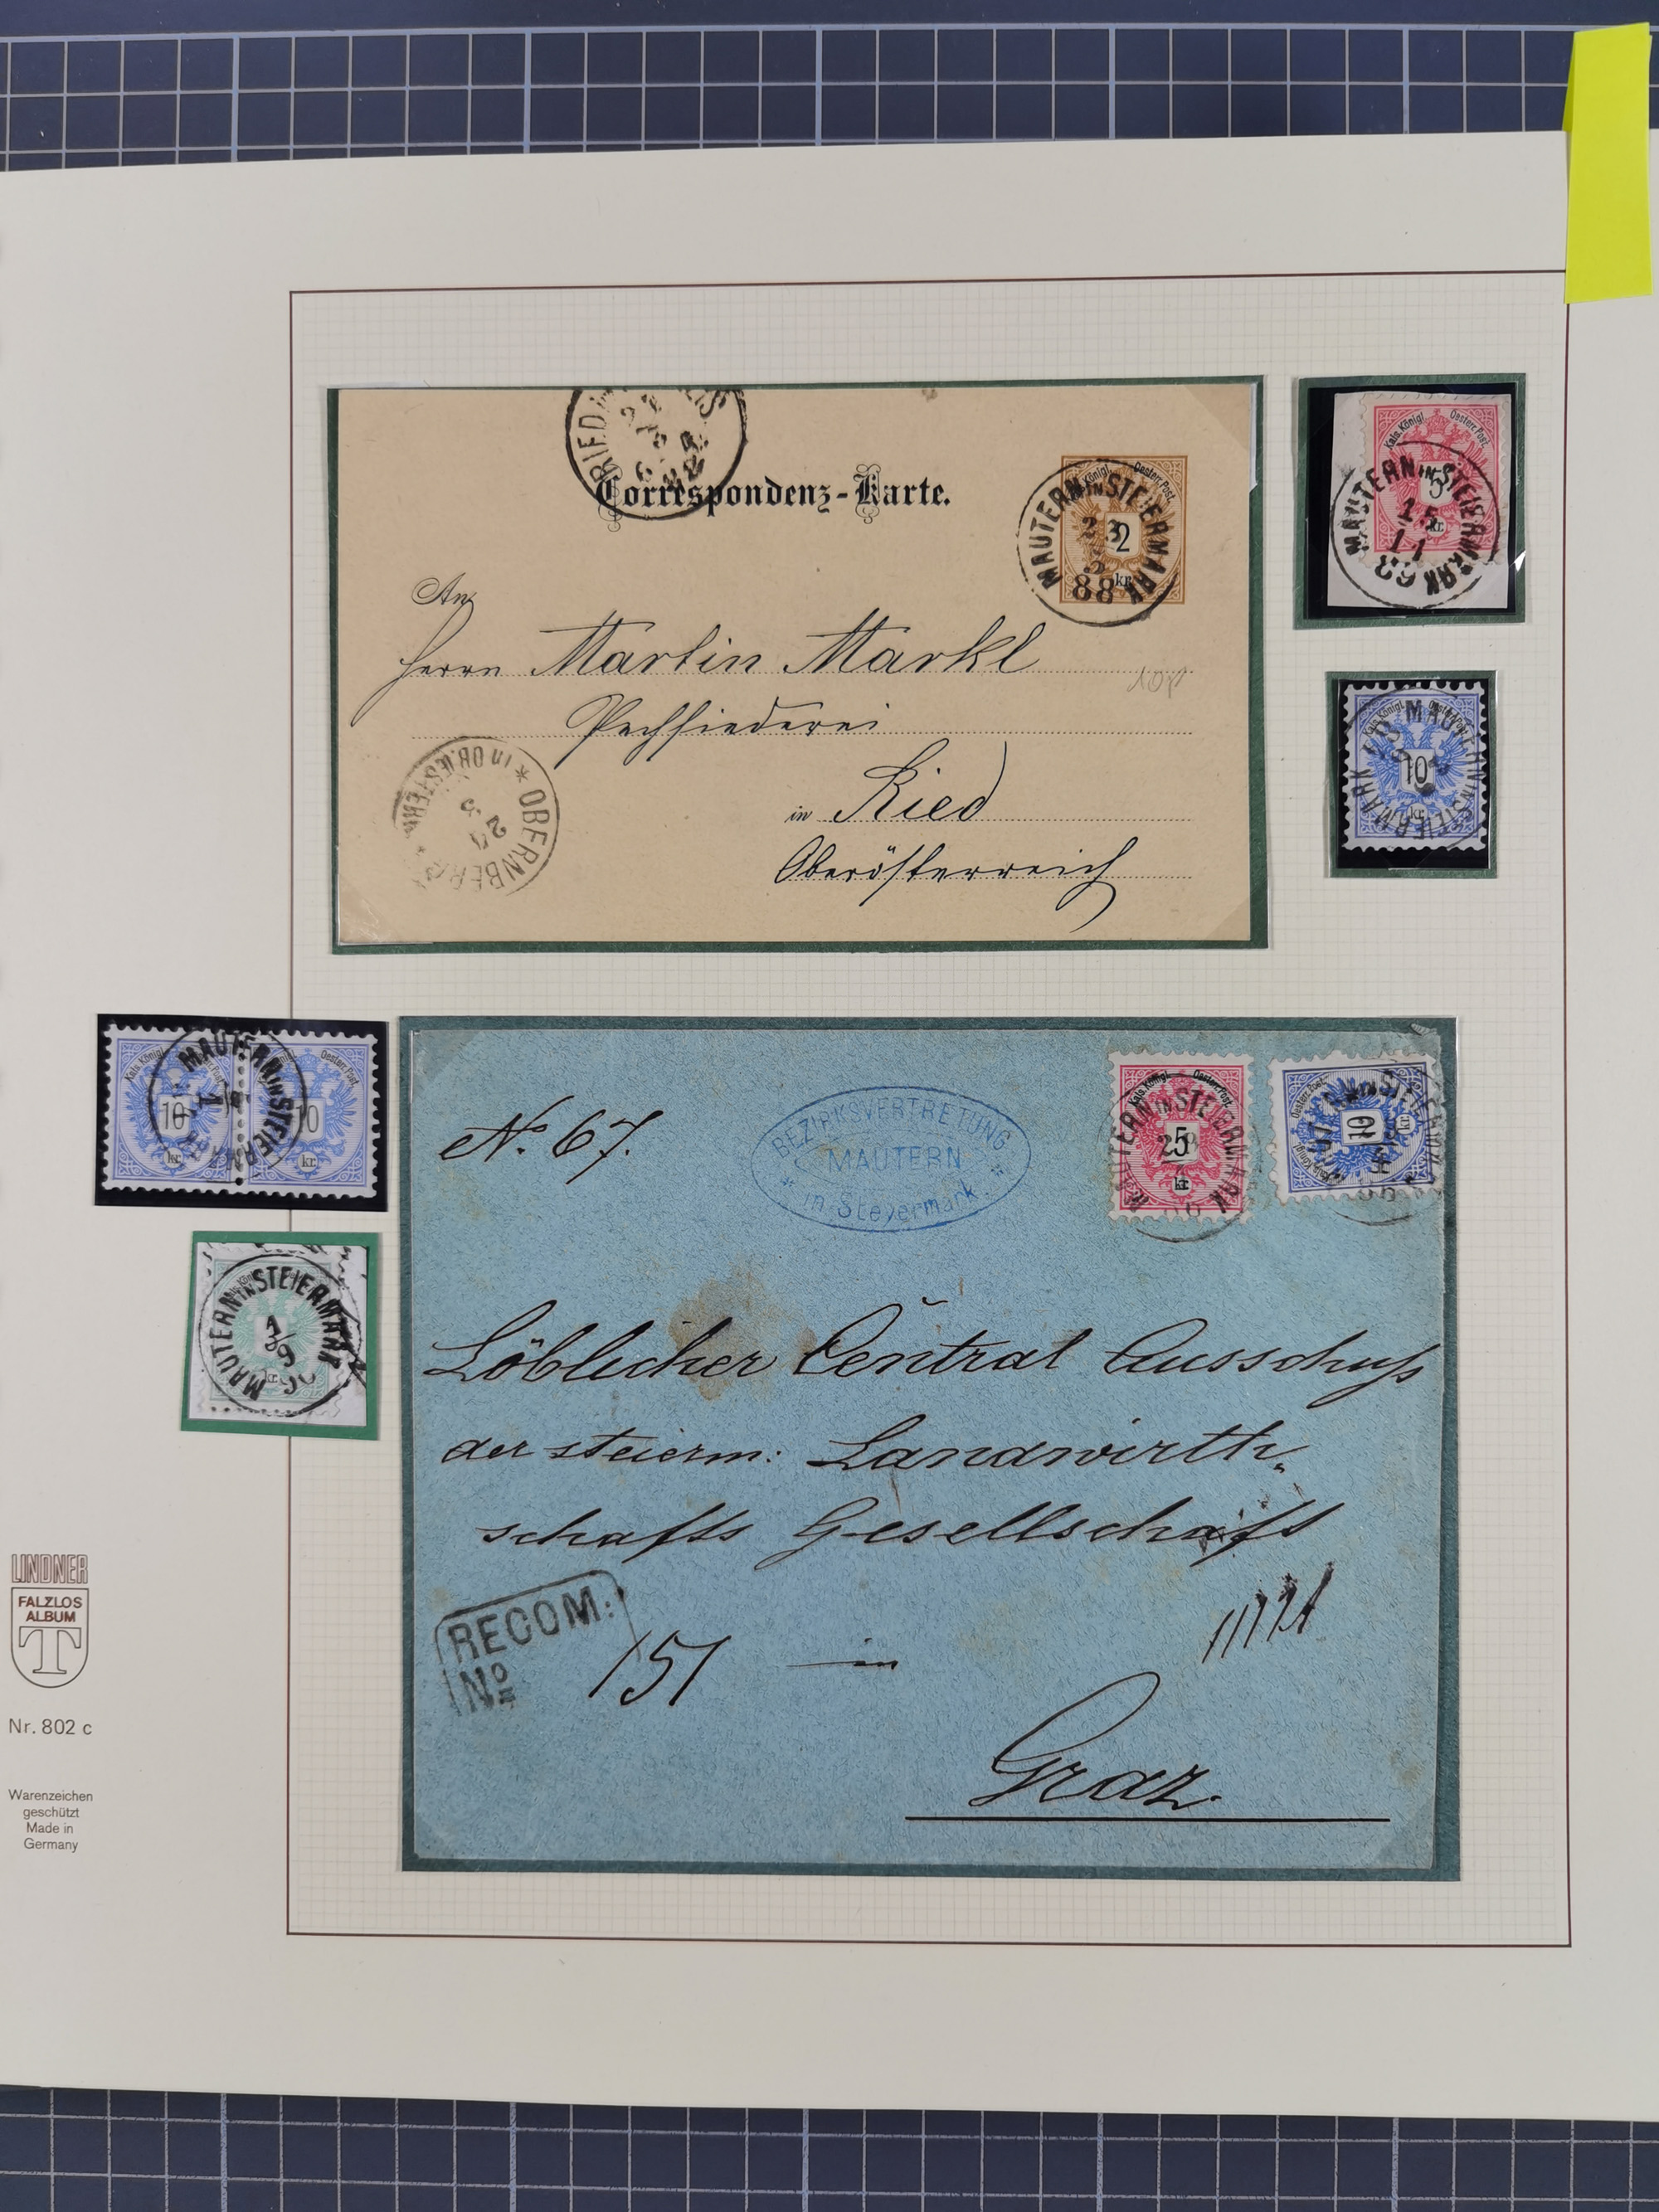 Correspondenz-Karte.
RIED
Kais. Königl. Oesterr. Post.
2
kr.
MAUTERN IN STEIERMARK
88
An
Herrn Martin Markl
Pechsiederei
in Ried
Oberösterreich
OBERNBERG
IN OB. OESTERR.
Kais. Königl. Oesterr. Post.
5
kr.
MAUTERN IN STEIERMARK
15
11
Kais. Königl.
10
kr.
MAUTERN IN STEIERMARK
Kais. Königl. Oesterr. Post.
10
kr.
10
kr.
MAUTERN IN STEIERMARK
MAUTERN IN STEIERMARK
kr.
No. 67.
BEZIRKSVERTRETUNG
MAUTERN
in Steyermark.
Kais. Königl. Oesterr. Post.
5
kr.
MAUTERN IN STEIERMARK
Kais. Königl. Oesterr. Post.
10
kr.
Löblicher Central Ausschuß
der steierm: Landwirth-
schafts Gesellschaft
RECOM:
No 151
in
Graz.
LINDNER
FALZLOS
ALBUM
T
Nr. 802 c
Warenzeichen
geschützt
Made in
Germany